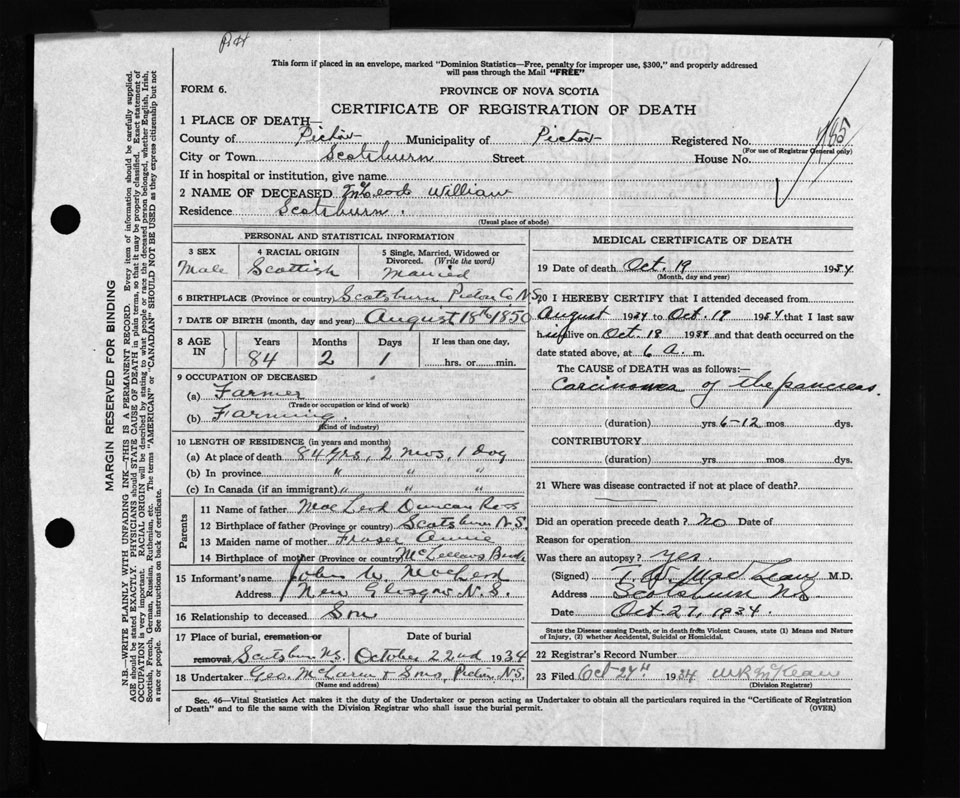 This form if placed in an envelope, marked "Dominion Statistics—Free, penalty for improper use, $300," and properly addressed
will pass through the Mail "FREE"
FORM 6.
PROVINCE OF NOVA SCOTIA
CERTIFICATE OF REGISTRATION OF DEATH
1 PLACE OF DEATH—
County of Pictou Municipality of Pictou Registered No.
(For use of Registrar General only)
City or Town Scotsburn Street House No.
If in hospital or institution, give name
2 NAME OF DECEASED McLeod William
Residence Scotsburn.
(Usual place of abode)
PERSONAL AND STATISTICAL INFORMATION
3 SEX 4 RACIAL ORIGIN 5 Single, Married, Widowed or Divorced. (Write the word)
Male Scottish Married
6 BIRTHPLACE (Province or country) Scotsburn Pictou Co N.S.
7 DATE OF BIRTH (month, day and year) August 18th 1850
8 AGE IN Years Months Days If less than one day,
84 2 1 hrs. or min.
9 OCCUPATION OF DECEASED
(a) Farmer
(Trade or occupation or kind of work)
(b) Farming.
(Kind of industry)
10 LENGTH OF RESIDENCE (in years and months)
(a) At place of death 84 yrs, 2 mos, 1 Day
(b) In province " " "
(c) In Canada (if an immigrant) " " "
Parents
11 Name of father MacLeod Duncan Ross
12 Birthplace of father (Province or country) Scotsburn N.S.
13 Maiden name of mother Fraser Annie
14 Birthplace of mother (Province or country) McLellans
15 Informant's name John W. MacLeod
Address New Glasgow N.S.
16 Relationship to deceased Son
17 Place of burial, cremation or removal Date of burial
Scotsburn N.S. October 22nd 1934
18 Undertaker Geo. McLaren & Sons, Pictou N.S.
(Name and address)
MEDICAL CERTIFICATE OF DEATH
19 Date of death Oct. 19 1934.
(Month, day and year)
20 I HEREBY CERTIFY that I attended deceased from
August 1934 to Oct. 19 1934 that I last saw
him alive on Oct. 18 1934 and that death occurred on the
date stated above, at 6 a. m.
The CAUSE of DEATH was as follows:—
Carcinoma of the pancreas
(duration) yrs 6-12 mos. dys.
CONTRIBUTORY
(duration) yrs mos dys.
21 Where was disease contracted if not at place of death?
Did an operation precede death? no Date of
Reason for operation
Was there an autopsy? yes.
(Signed) T.W. MacLean M.D.
Address Scotsburn N.S.
Date Oct. 27, 1934.
State the Disease causing Death, or in death from Violent Causes, state (1) Means and Nature of Injury, (2) whether Accidental, Suicidal or Homicidal.
22 Registrar's Record Number
23 Filed Oct 27th 1934
(Division Registrar)
Sec. 46—Vital Statistics Act makes it the duty of the Undertaker or person acting as Undertaker to obtain all the particulars required in the "Certificate of Registration
of Death" and to file the same with the Division Registrar who shall issue the burial permit. (OVER)
MARGIN RESERVED FOR BINDING
N.B.—WRITE PLAINLY WITH UNFADING INK—THIS IS A PERMANENT RECORD. Every item of information should be carefully supplied.
AGE should be stated EXACTLY. PHYSICIANS should STATE CAUSE OF DEATH in plain terms, so that it may be properly classified. Exact statement of
OCCUPATION is very important. RACIAL ORIGIN will be described by stating to what people or race the deceased person belonged, whether English, Irish,
Scottish, French, German, Russian, Ruthenian, etc. The terms "AMERICAN" or "CANADIAN" SHOULD NOT BE USED as they express citizenship but not
a race or people. See instructions on back of certificate.